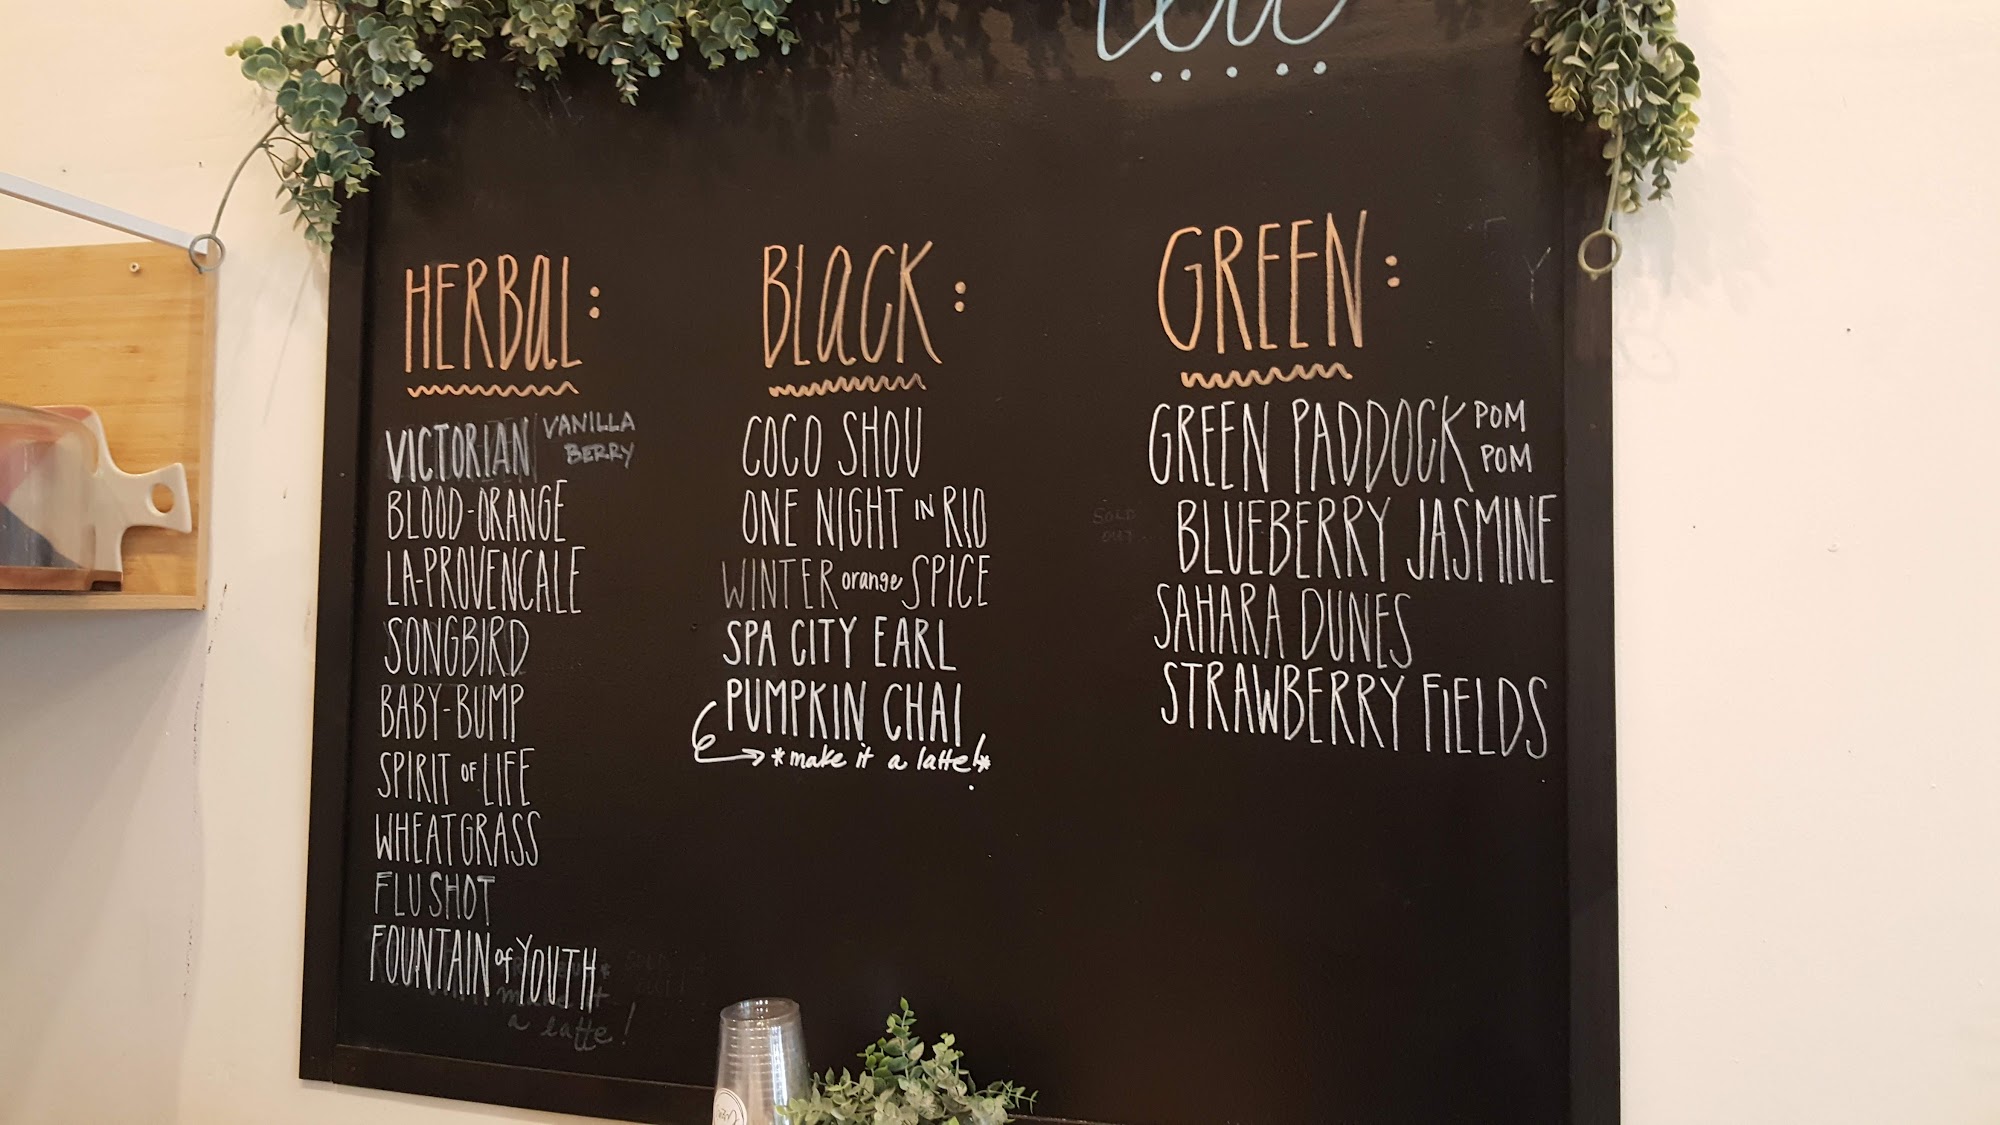 HERBAL:
VICTORIAN VANILLA
BERRY
BLOOD-ORANGE
LA-PROVENCALE
SONGBIRD
BABY-BUMP
SPIRIT OF LIFE
WHEATGRASS
FLU SHOT
FOUNTAIN of YOUTH
make it
a latte!
BLACK:
COCO SHOU
ONE NIGHT IN RIO
WINTER orange SPICE
SPA CITY EARL
PUMPKIN CHAI
*make it a latte!*
GREEN:
GREEN PADDOCK POM
POM
SOLD
OUT
BLUEBERRY JASMINE
SAHARA DUNES
STRAWBERRY FIELDS